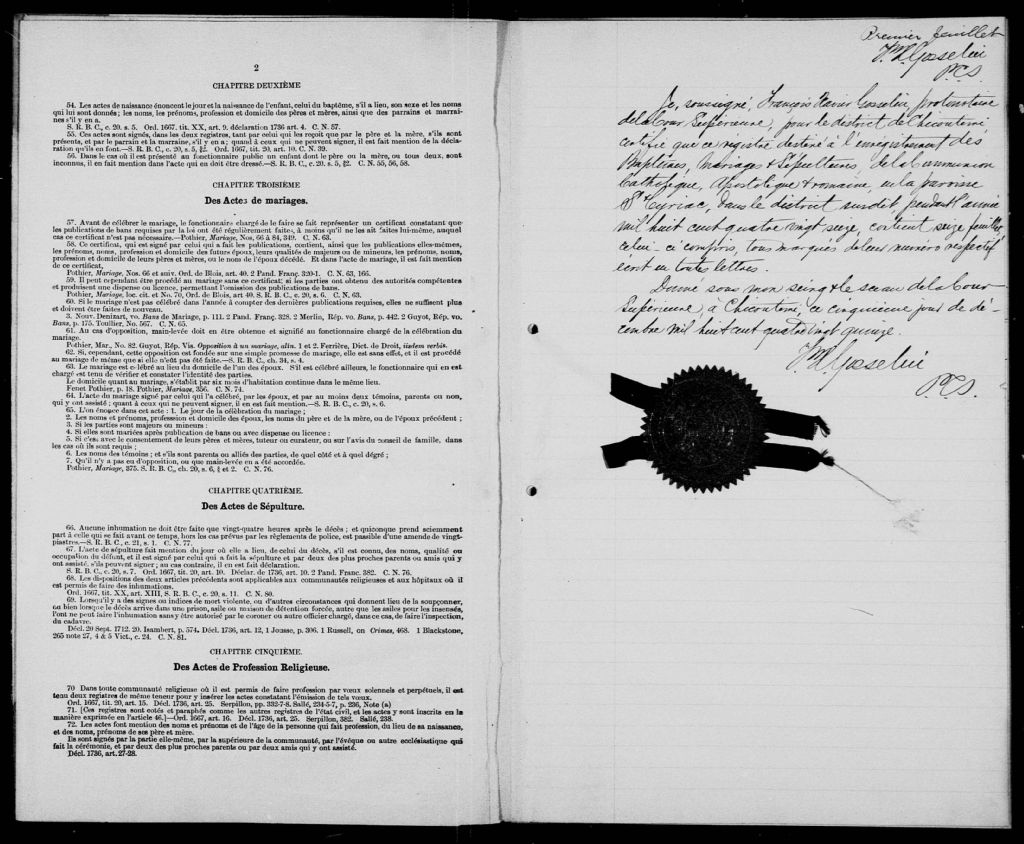 2
CHAPITRE DEUXIÈME
54. Les actes de naissance énoncent le jour et la naissance de l'enfant, celui du baptême, s'il a lieu, son sexe et les noms
qui lui sont donnés; les noms, les prénoms, profession et domicile des pères et mères, ainsi que des parrains et marrai-
nes s'il y en a.
S. R. B. C., c. 20. s. 5. Ord. 1667, tit. XX, art. 9. déclaration 1736 art. 4. C. N. 57.
55. Ces actes sont signés, dans les deux registres, tant par celui qui les reçoit que par le père et la mère, s'ils sont
présents, et par le parrain et la marraine, s'il y en a; quand à ceux qui ne peuvent signer, il est fait mention de la décla-
ration qu'ils en font.—S. R. B. C., c. 20, s. 5, §2. Ord. 1667, tit. 20, art. 10. C. N. 39.
56. Dans le cas où il est présenté au fonctionnaire public un enfant dont le père ou la mère, ou tous deux, sont
inconnus, il en fait mention dans l'acte qui en doit être dressé.—S. R. B. C., c. 20. s. 5, §2. C. N. 55, 56, 58.
CHAPITRE TROISIÈME
Des Actes de mariages.
57. Avant de célébrer le mariage, le fonctionnaire chargé de le faire se fait représenter un certificat constatant que
les publications de bans requises par la loi ont été régulièrement faites, à moins qu'il ne les ait faites lui-même, auquel
cas ce certificat n'est pas nécessaire.—Pothier, Mariage, Nos, 66 à 84, 349. C. N. 63.
58. Ce certificat, qui est signé par celui qui a fait les publications, contient, ainsi que les publications elles-mêmes,
les prénoms, noms, profession et domicile des futurs époux, leurs qualités de majeurs ou de mineurs, les prénoms, noms,
profession et domicile de leurs pères et mères, ou le nom de l'époux décédé. Et dans l'acte de mariage, il est fait mention
de ce certificat,
Pothier, Mariage, Nos. 66 et suiv. Ord. de Blois, art. 40. 2 Pand. Franç. 320-1. C. N. 63, 166.
59. Il peut cependant être procédé au mariage sans ce certificat; si les parties ont obtenu des autorités compétentes
et produisent une dispense ou licence, permettant l'omission des publications de bans.
Pothier, Mariage, loc. cit. et No. 70, Ord. de Blois, art 40. S. R. B. C., c. 20, s. 6. C. N. 63.
60. Si le mariage n'est pas célébré dans l'année à compter des dernières publications requises, elles ne suffisent plus
et doivent être faites de nouveau.
3. Nouv. Denizart, vo. Bans de Mariage, p. 111. 2 Pand. Franç. 328. 2 Merlin, Rép. vo. Bans, p. 442. 2 Guyot, Rép. vo.
Bans, p. 175. Toullier, No. 567. C. N. 65.
61. Au cas d'opposition, main-levée doit en être obtenue et signifié au fonctionnaire chargé de la célébration du
mariage.
Pothier, Mar., No. 82. Guyot, Rép. Vis. Opposition à un mariage, alin. 1 et 2. Ferrière, Dict. de Droit, iisdem verbis.
62. Si, cependant, cette opposition est fondée sur une simple promesse de mariage, elle est sans effet, et il est procédé
au mariage de même que si elle n'eût pas été faite.—S. R. B. C., ch. 34, s. 4.
63. Le mariage est célébré au lieu du domicile de l'un des époux. S'il est célébré ailleurs, le fonctionnaire qui en est
chargé est tenu de vérifier et constater l'identité des parties.
Le domicile quant au mariage, s'établit par six mois d'habitation continue dans le même lieu.
Fenet Pothier, p. 18. Pothier, Mariage, 356. C. N. 74.
64. L'acte du mariage signé par celui qui l'a célébré, par les époux, et par au moins deux témoins, parents ou non,
qui y ont assisté; quant à ceux qui ne peuvent signer, il en est fait mention.—S. R. B. C., c. 20, s. 6.
65. L'on énonce dans cet acte: 1. Le jour de la célébration du mariage;
2. Les noms et prénoms, professsion et domicile des époux, les noms du père et de la mère, ou de l'époux précédent;
3. Si les parties sont majeurs ou mineurs:
4. Si elles sont mariées après publication de bans ou avec dispense ou licence:
5. Si c'est avec le consentement de leurs pères et mères, tuteur ou curateur, ou sur l'avis du conseil de famille, dans
les cas où ils sont requis;
6. Les noms des témoins; et s'ils sont parents ou alliés des parties, de quel côté et à quel dégré;
7. Qu'il n'y a pas eu d'opposition, ou que main-levée en a été accordée.
Pothier, Mariage, 375. S. R. B. C., ch. 20, s. 6, § et 2. C. N. 76.
CHAPITRE QUATRIÈME.
Des Actes de Sépulture.
66. Aucune inhumation ne doit être faite que vingt-quatre heures après le décès; et quiconque prend sciemment
part à celle qui se fait avant ce temps, hors les cas prévus par les règlements de police, est passible d'une amende de vingt-
piastres.—S. R. B. C., c. 21, s. 1. C. N. 77.
67. L'acte de sépulture fait mention du jour où elle a lieu, de celui du décès, s'il est connu, des noms, qualité ou
occupation du défunt, et il est signé par celui qui a fait la sépulture et par deux des plus proches parents ou amis qui y
ont assisté, s'ils peuvent signer; au cas contraire, il en est fait déclaration.
S. R. B. C., c. 20, s. 7. Ord. 1667, tit. 20, art. 10. Déclar. de 1736, art. 10. 2 Pand. Franc. 382. C. N. 76.
68. Les dispositions des deux articles précédents sont applicables aux communautés religieuses et aux hôpitaux où il
est permis de faire des inhumations.
Ord. 1667, tit. XX, art. XIII, S. R. B. C., c. 20, s. 11. C. N. 80.
69. Lorsqu'il y a des signes ou indices de mort violente, ou d'autres circonstances qui donnent lieu de la soupçonner,
ou bien lorsque le décès arrive dans une prison, asile ou maison de détention forcée, autre que les asiles pour les insensés,
l'ont ne peut faire l'inhumation sans y être autorisé par le coroner ou autre officier chargé, dans ce cas, de faire l'inspection,
du cadavre.
Décl. 20 Sept. 1712. 20. Isambert, p. 574. Décl. 1736, art. 12, 1 Jousse, p. 306. 1 Russell, on Crimes, 468. 1 Blackstone,
265 note 27, 4 & 5 Vict., c. 24. C. N. 81.
CHAPITRE CINQUIÈME.
Des Actes de Profession Religieuse.
70 Dans toute communauté religieuse où il est permis de faire profession par vœux solennels et perpétuels, il est
tenu deux registres de même teneur pour y insérer les actes constatant l'émission de tels vœux.
Ord. 1667, tit. 20, art. 15. Décl. 1736, art. 25. Serpillon, pp. 332-7-8. Sallé, 234-5-7, p. 236, Note (a)
71. [Ces registres sont cotés et paraphés comme les autres registres de l'état civil, et les actes y sont inscrits en la
manière exprimée en l'article 46.]—Ord. 1667, art. 16. Décl. 1736, art. 25. Serpillon, 382. Sallé, 238.
72. Les actes font mention des noms et prénoms et de l'âge de la personne qui fait profession, du lieu de sa naissance,
et des noms, prénoms de ses père et mère.
Ils sont signés par la partie elle-même, par la supérieure de la communauté, par l'évêque ou autre ecclésiastique qui
fait la cérémonie, et par deux des plus proches parents ou par deux amis qui y ont assisté.
Décl. 1736, art. 27-28.
Premier feuillet
Gosselin
P.C.S.
Je, soussigné, François Xavier Gosselin, protonotaire
de la Cour Supérieure, pour le district de Chicoutimi
certifie que ce registre destiné à l'enregistrement des
Baptêmes, Mariages & Sépultures, de la Communion
Catholique, Apostolique & romaine, en la paroisse
St Cyriac, dans le district susdit, pendant l'année
mil huit cent quatre vingt seize, contient seize feuillets
celui-ci compris, tous marqués de leur numéro respectif
écrit en toutes lettres.
Donné sous mon seing & le sceau de la Cour
Supérieure, à Chicoutimi, ce cinquième jour de dé-
cembre mil huit cent quatre vingt quinze.
Gosselin
P.C.S.